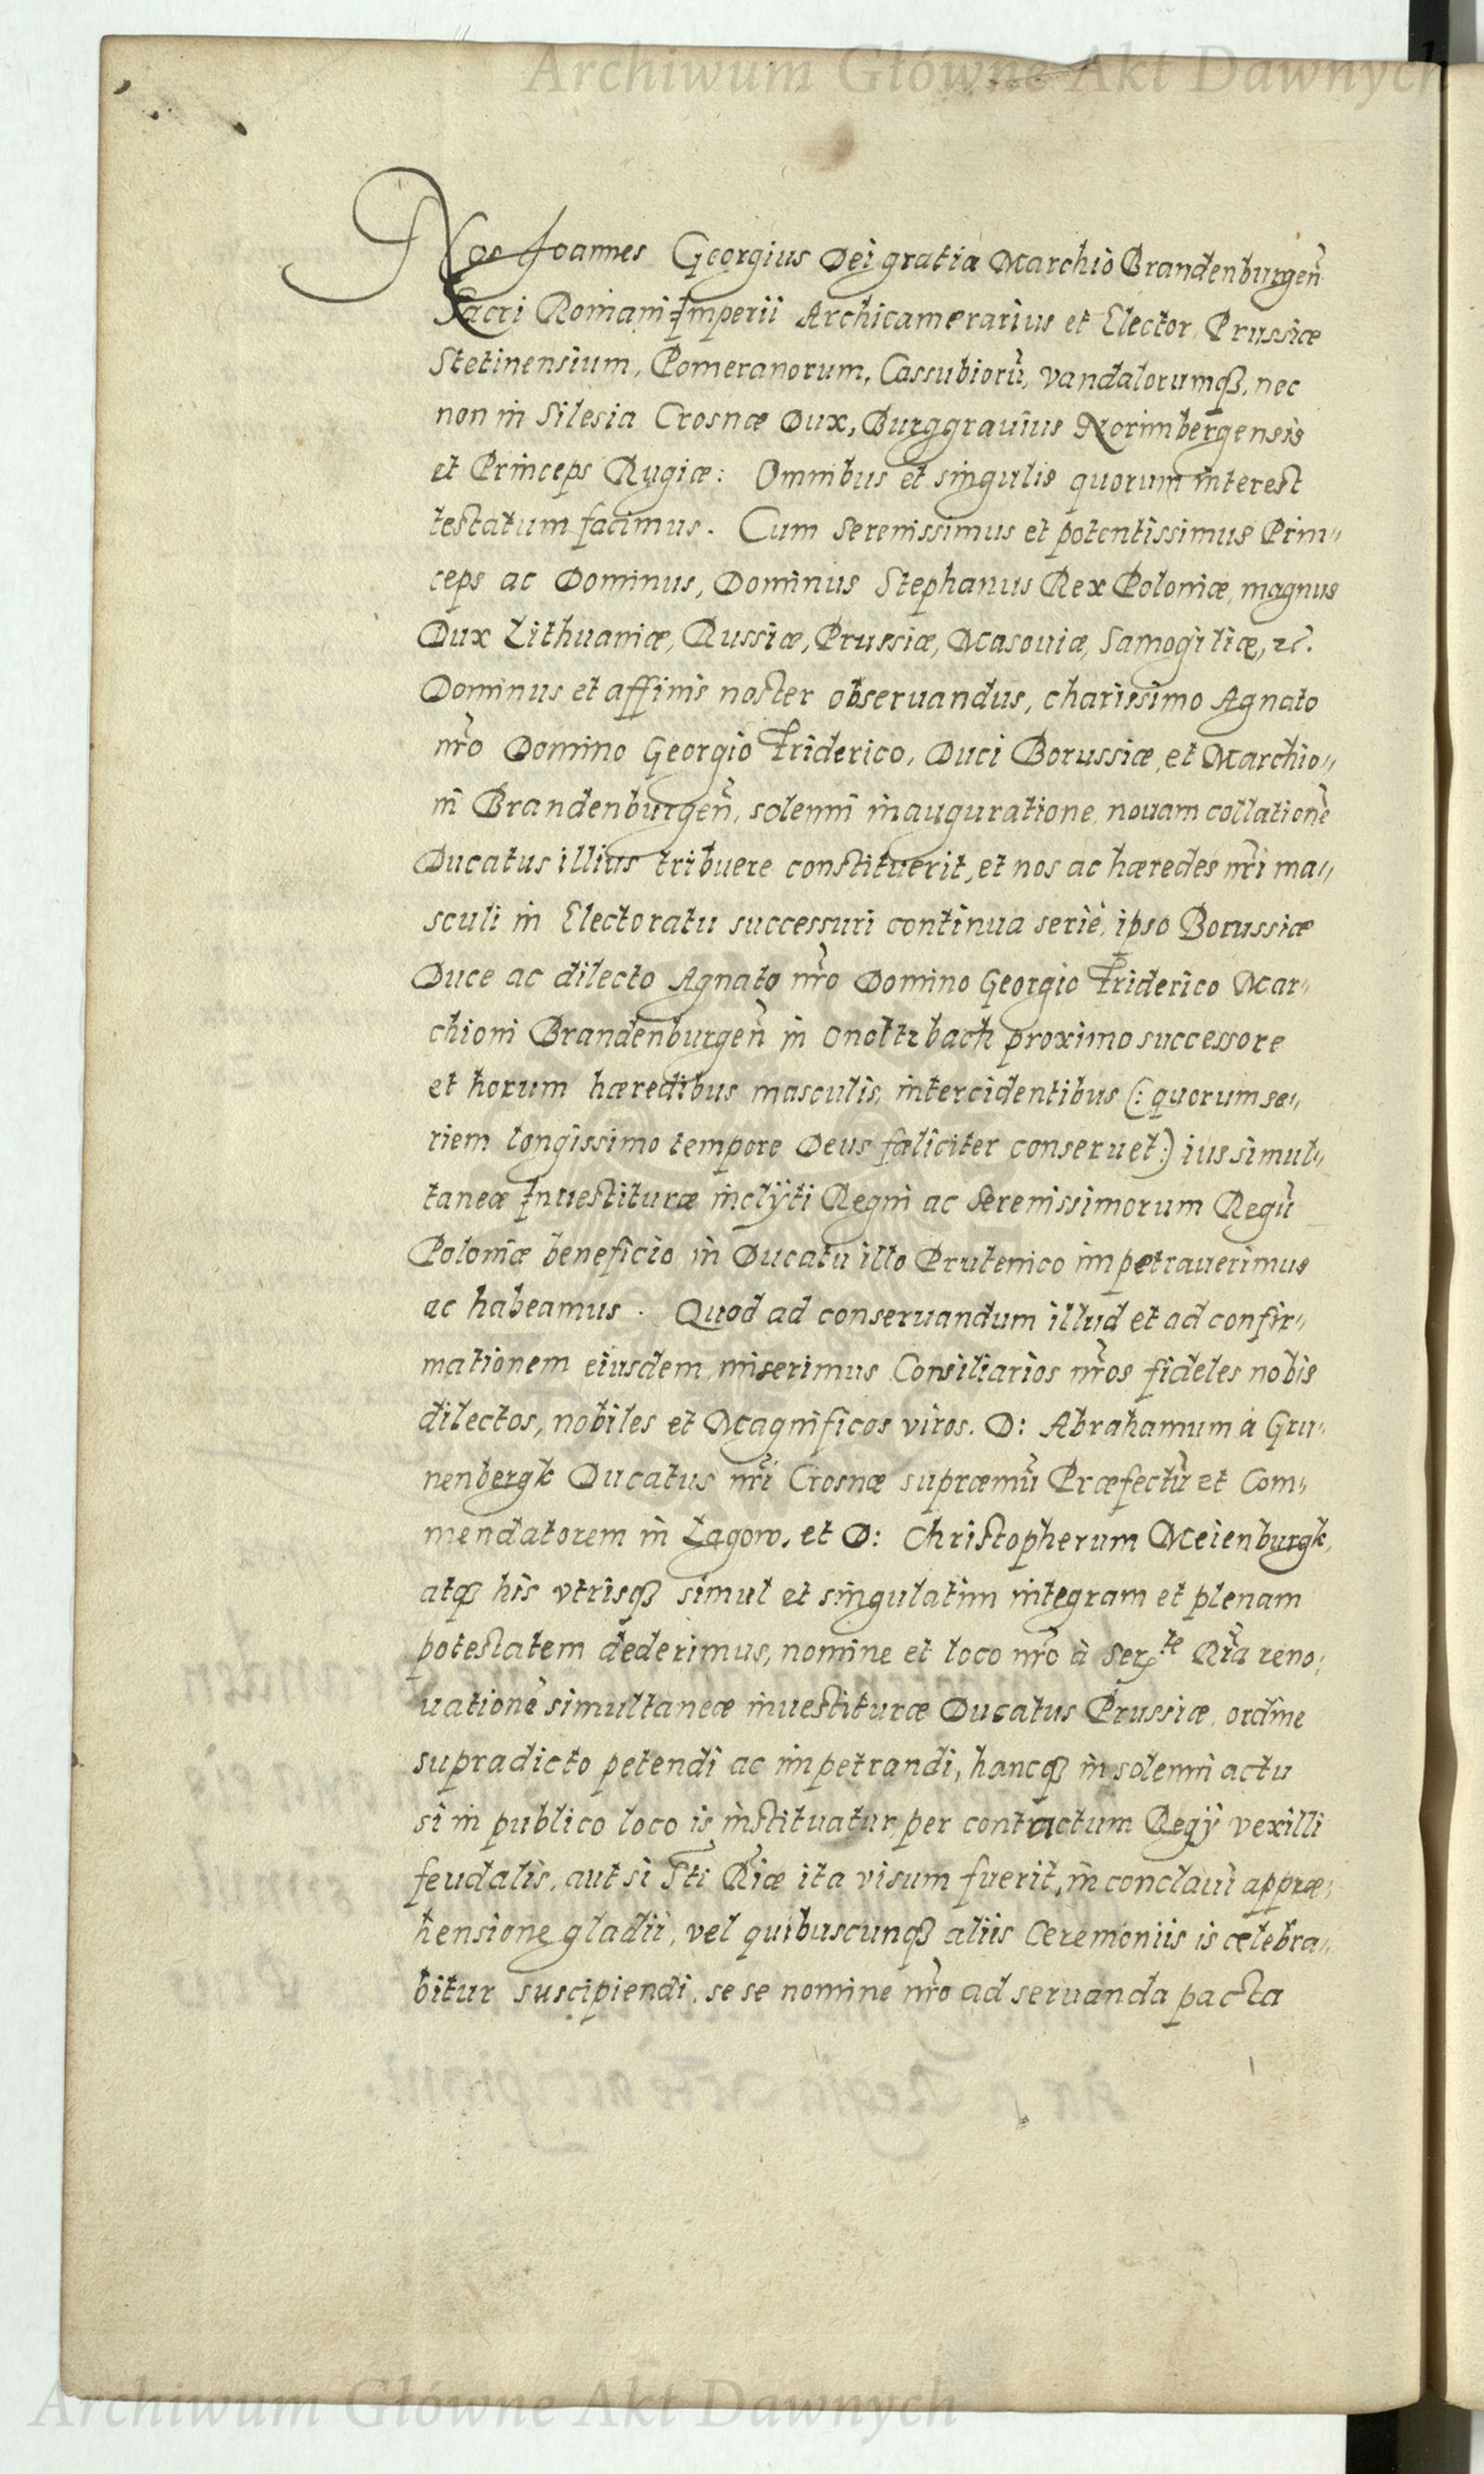 Archiwum Główne Akt Dawnych
Nos Joannes Georgius Dei gratia Marchio Brandenburgeñ
Sacri Romani Imperii Archicamerarius et Elector, Prussiæ
Stetinensium, Pomeranorum, Cassubiorũ, vandalorumqꝫ, nec
non in Silesia Crosnæ Dux, Burggrauius Norimbergensis
et Princeps Rugiæ: Omnibus et singulis quorum interest
testatum facimus. Cum Serenissimus et potentissimus Prin„
ceps ac Dominus, Dominus Stephanus Rex Poloniæ, magnus
Dux Lithuaniæ, Russiæ, Prussiæ, Masouiæ, Samogitiæ, ꝛc.
Dominus et affinis noster obseruandus, charissimo Agnato
nr̃o Domino Georgio Friderico, Duci Borussiæ, et Marchio„
ni Brandenburgeñ, solenni inauguratione, nouam collationẽ
Ducatus illius tribuere constituerit, et nos ac hæredes nr̃i ma„
sculi in Electoratu successuri continua serie, ipso Borussiæ
Duce ac dilecto Agnato nr̃o Domino Georgio Friderico Mar„
chioni Brandenburgeñ in Onoltzbach proximo successore
et horum hæredibus masculis, intercidentibus (: quorum se„
riem longissimo tempore Deus fæliciter conseruet :) ius simul„
taneæ Inuestituræ inclÿti Regni ac Serenissimorum Regũ
Poloniæ beneficio in Ducatu illo Prutenico impetrauerimus
ac habeamus. Quod ad conseruandum illud et ad confir„
mationem eiusdem, miserimus Consiliarios nr̃os fideles nobis
dilectos, nobiles et Magnificos viros. D: Abrahamum à Gru„
nenbergk Ducatus nr̃i Crosnæ supræmũ Præfectũ et Com„
mendatorem in Lagow, et D: Christopherum Meienburgk,
atqꝫ his vtrisqꝫ simul et singulatim integram et plenam
potestatem dederimus, nomine et loco nr̃o à Ser^te Rĩa reno„
uationẽ simultaneæ inuestituræ Ducatus Prussiæ, ordine
supradicto petendi ac impetrandi, hancqꝫ in solenni actu
si in publico loco is instituatur, per contractum Regÿ vexilli
feudalis, aut si Sti Rĩæ ita visum fuerit, in conclaui appræ„
hensione gladii, vel quibuscunqꝫ aliis Ceremoniis is celebra„
bitur suscipiendi, se se nomine nr̃o ad seruanda pacta
Archiwum Główne Akt Dawnych